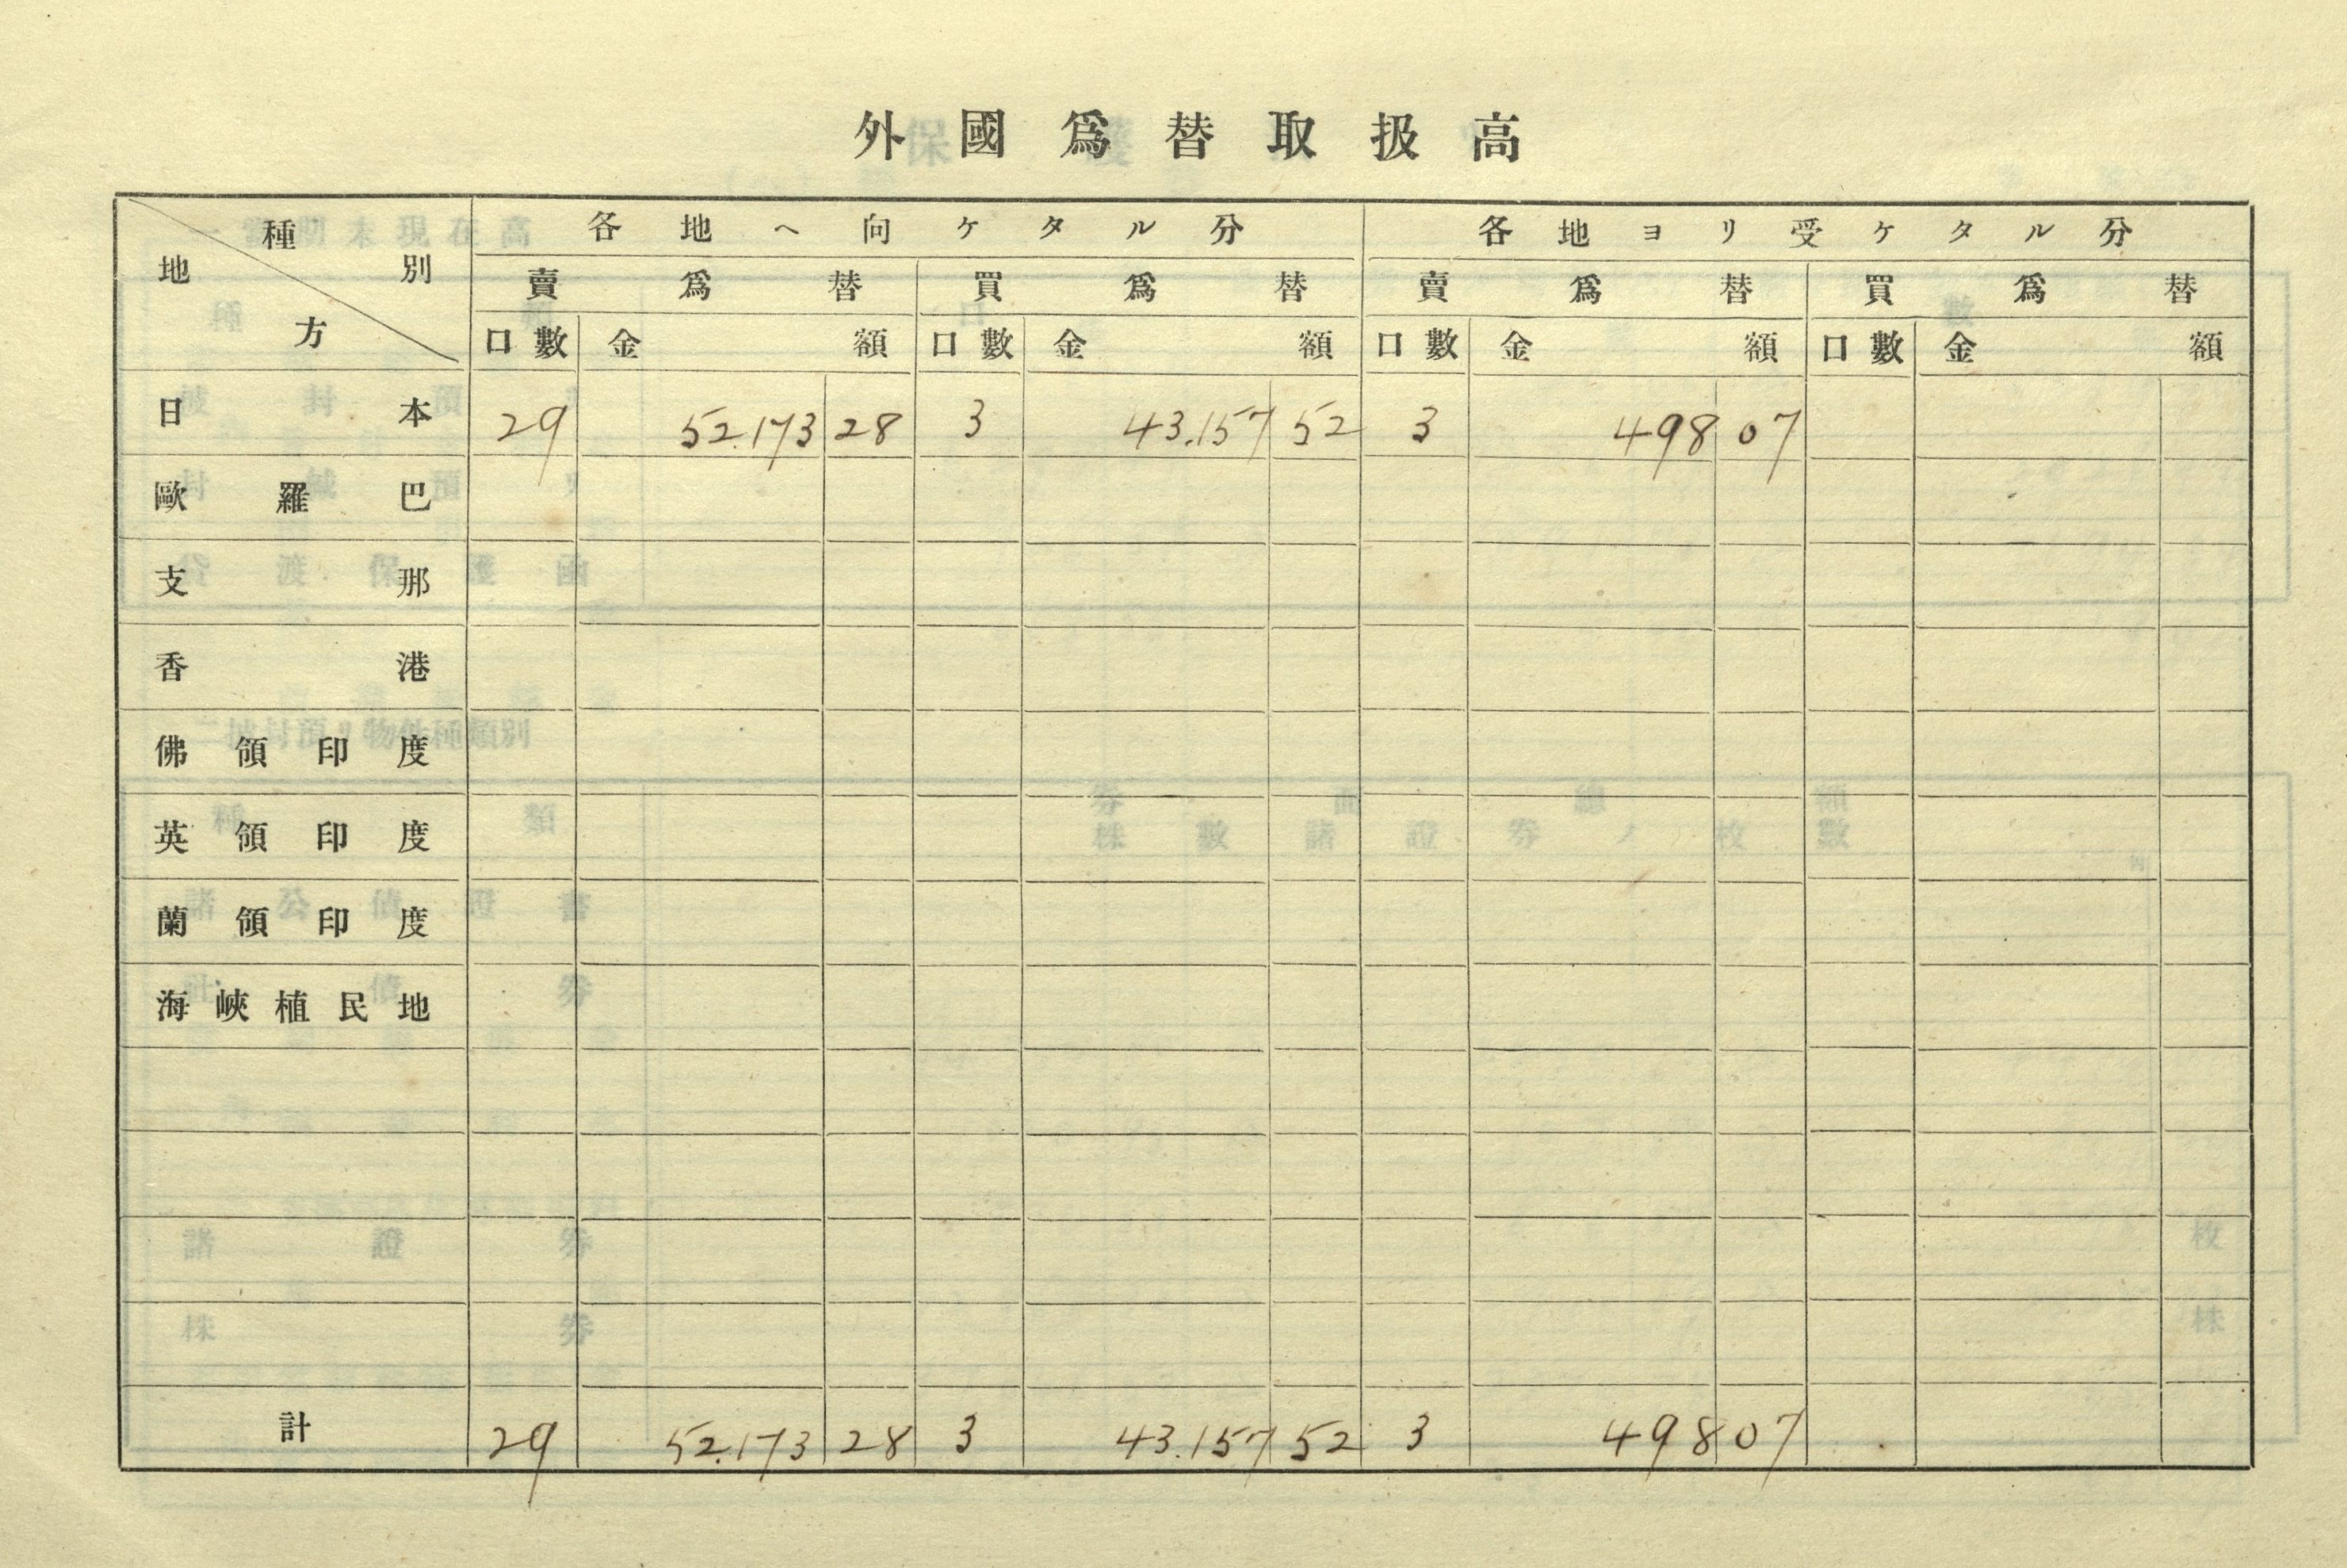 外國爲替取扱高
種別 地方 各地ヘ向ケタル分 各地ヨリ受ケタル分
賣爲替 買爲替 賣爲替 買爲替
口數 金額 口數 金額 口數 金額 口數 金額
日本 29 52.173 28 3 43.157 52 3 498 07
歐羅巴
支那
香港
佛領印度
英領印度
蘭領印度
海峽植民地
計 29 52.173 28 3 43.157 52 3 498 07